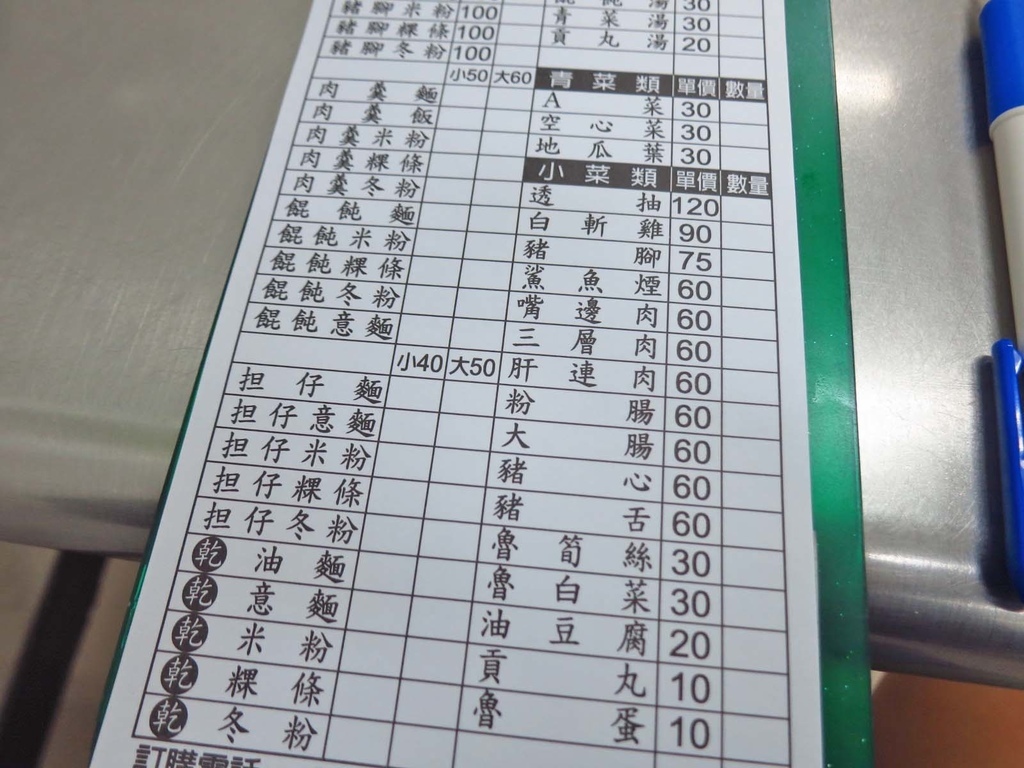 豬腳米粉 100
豬腳粿條 100
豬腳冬粉 100
小50 大60
肉羹麵
肉羹飯
肉羹米粉
肉羹粿條
肉羹冬粉
餛飩麵
餛飩米粉
餛飩粿條
餛飩冬粉
餛飩意麵
小40 大50
担仔麵
担仔意麵
担仔米粉
担仔粿條
担仔冬粉
乾油麵
乾意麵
乾米粉
乾粿條
乾冬粉
訂購電話
湯 30
青菜湯 30
貢丸湯 20
青菜類 單價 數量
A菜 30
空心菜 30
地瓜葉 30
小菜類 單價 數量
透抽 120
白斬雞 90
豬腳 75
鯊魚煙 60
嘴邊肉 60
三層肉 60
肝連肉 60
粉腸 60
大腸 60
豬心 60
豬舌 60
魯筍絲 30
魯白菜 30
油豆腐 20
貢丸 10
魯蛋 10